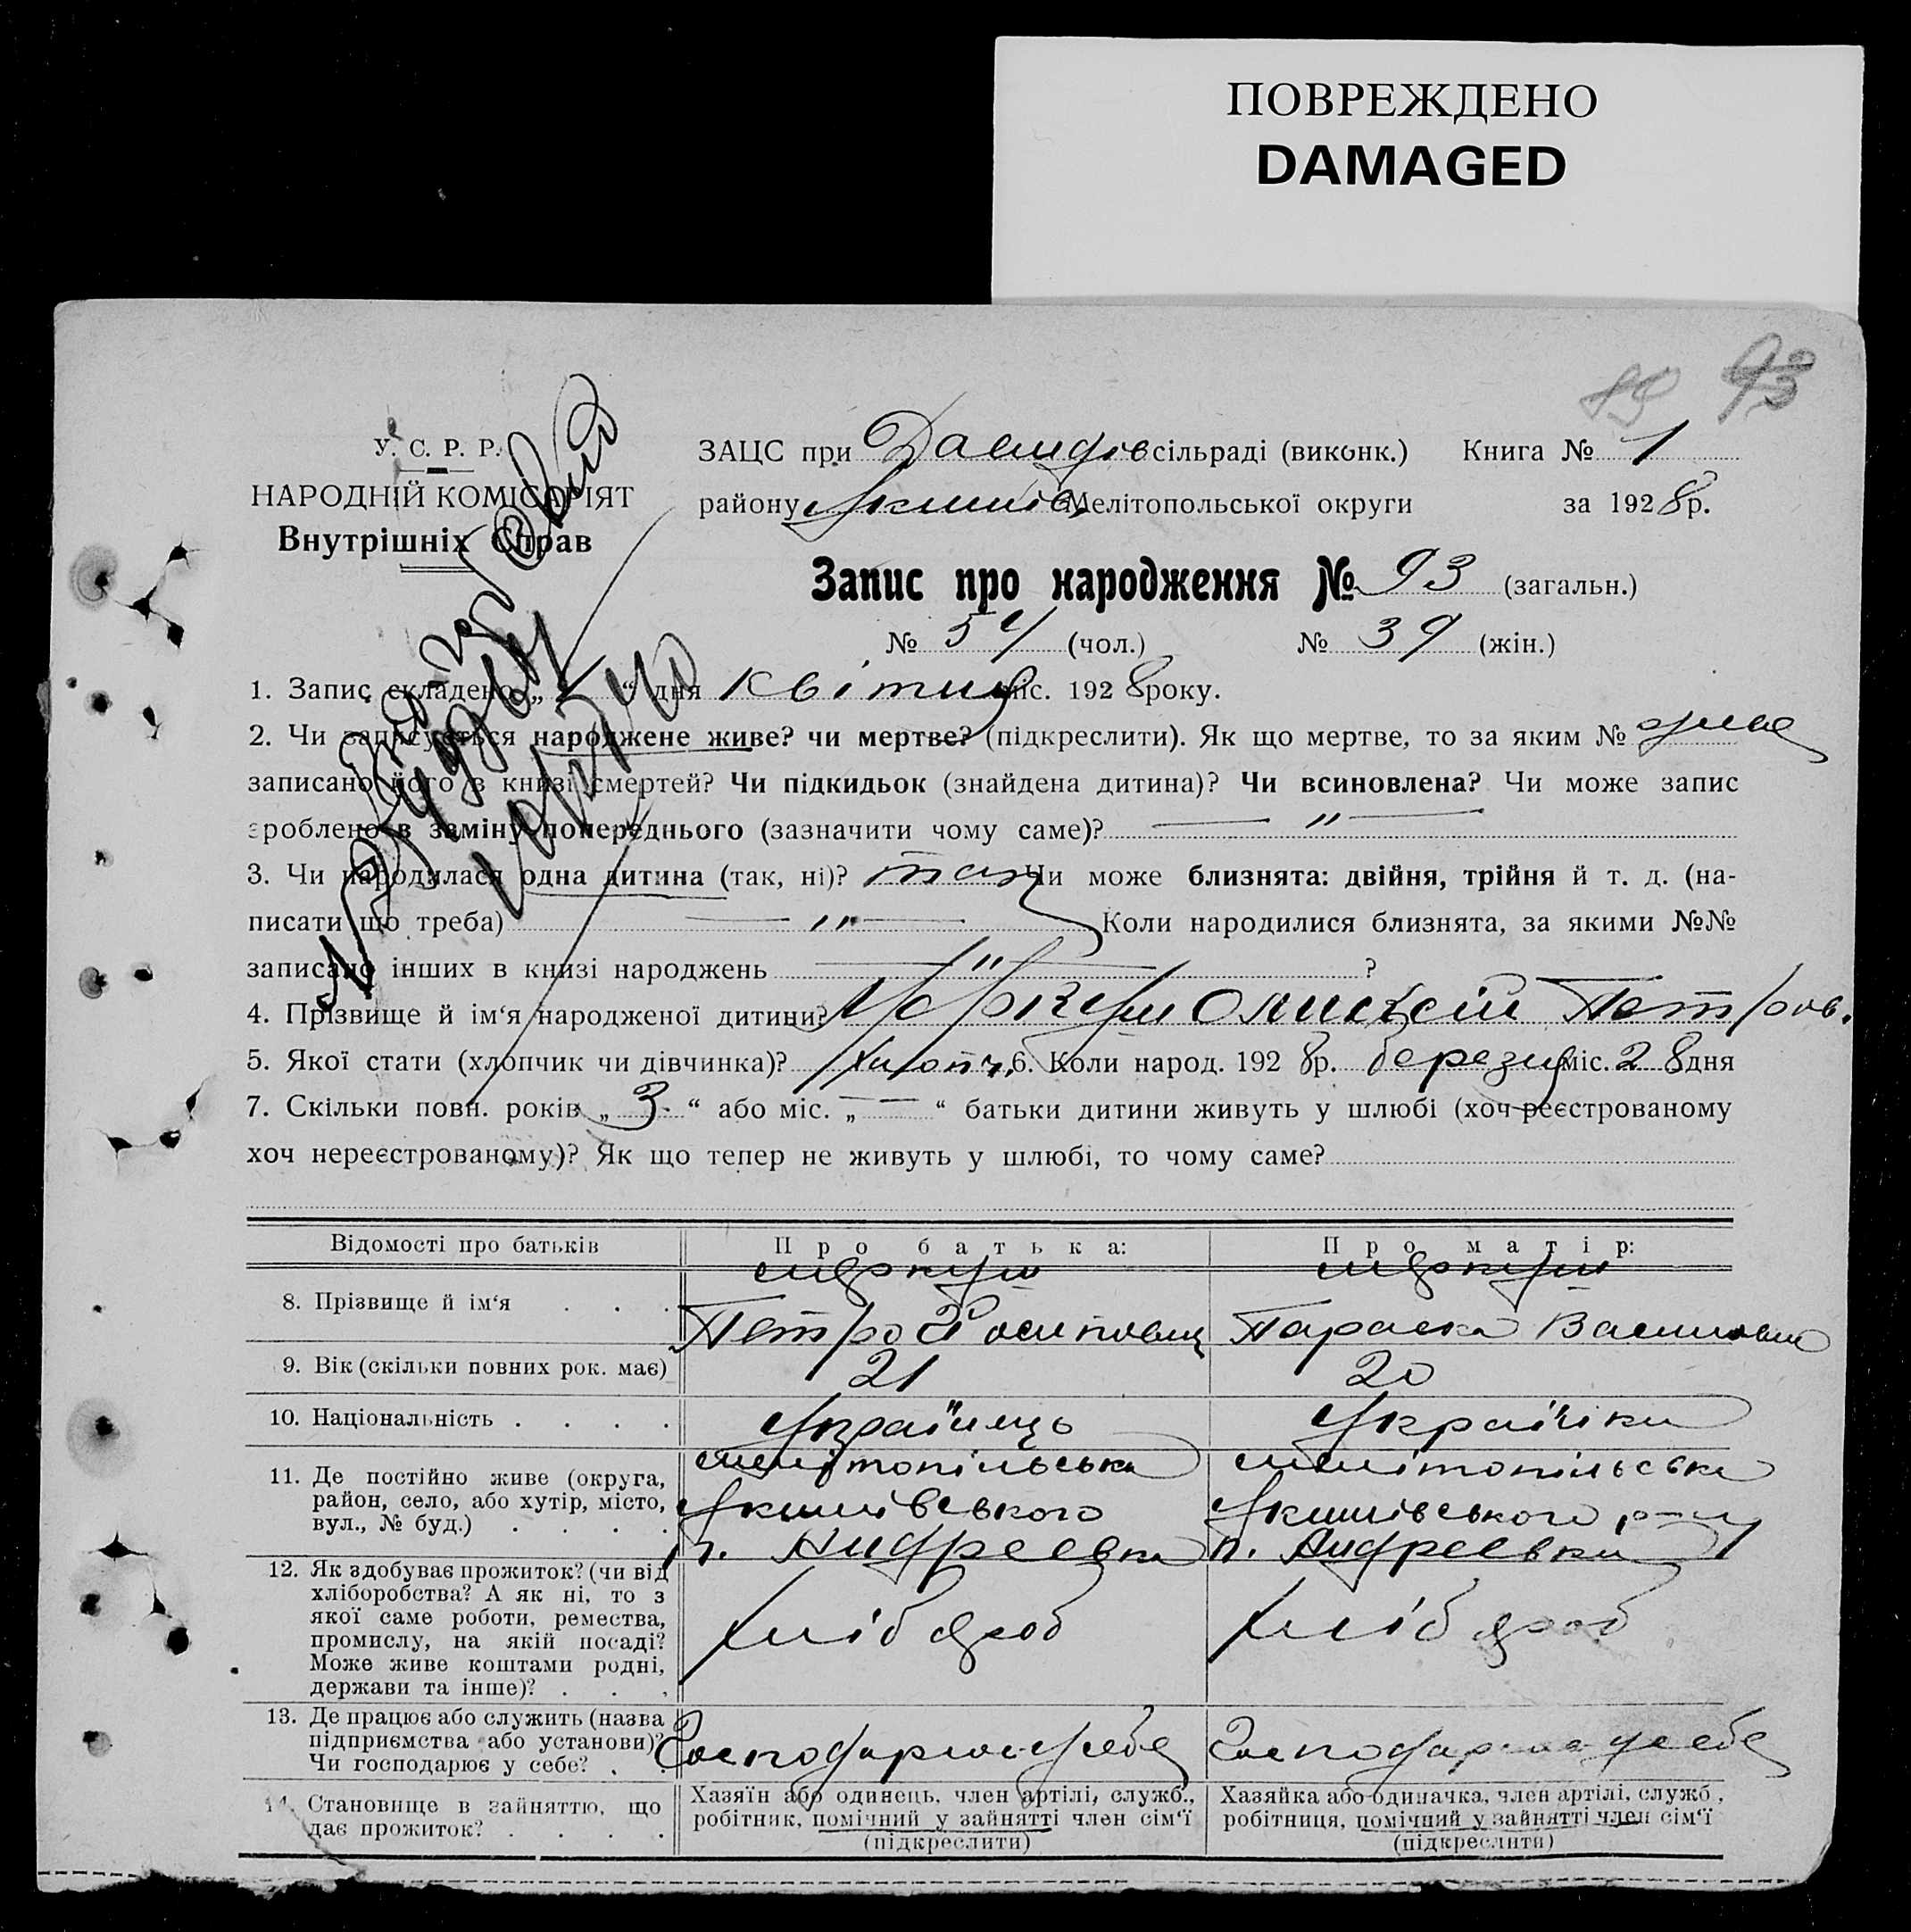 ПОВРЕЖДЕНО
DAMAGED
93
У. С. Р. Р.
НАРОДНІЙ КОМІСАРІЯТ
Внутрішніх Справ
ЗАЦС при Давидів сільраді (виконк.) Книга № 1
району Якимів. Мелітопольської округи за 1928 р.
Запис про народження № 93 (загальн.)
№ 54 (чол.) № 39 (жін.)
1. Запис складено „ “ дня Квітня міс. 1928 року.
2. Чи записується народжене живе? чи мертве? (підкреслити). Як що мертве, то за яким № живе
записано його в книзі смертей? Чи підкидьок (знайдена дитина)? Чи всиновлена? Чи може запис
зроблено в заміну попереднього (зазначити чому саме)? — „ —
3. Чи народилася одна дитина (так, ні)? так Чи може близнята: двійня, трійня й т. д. (на-
писати що треба) — „ — Коли народилися близнята, за якими №№
записано інших в книзі народжень — „ — ?
4. Прізвище й ім‘я народженої дитини? Меркуш Оликсій Петров.
5. Якої стати (хлопчик чи дівчинка)? Хлопч. 6. Коли народ. 1928 р. березня міс. 28 дня
7. Скільки повн. років „ 3 “ або міс. „ — “ батьки дитини живуть у шлюбі (хоч реєстрованому
хоч нереєстрованому)? Як що тепер не живуть у шлюбі, то чому саме?
Відомості про батьків Про батька: Про матір:
8. Прізвище й ім‘я . . . Меркуш Меркуш
Петро Йосипович Параска Васильовна
9. Вік (скільки повних рок. має) 21 20
10. Національність . . . . Українець Українка
11. Де постійно живе (округа, район, село, або хутір, місто, вул., № буд.) . . . .
Мелітопільська Мелітопільська
Якимівського Якимівського р-ну
п. Андреевка п. Андреевка
12. Як здобуває прожиток? (чи від хліборобства? А як ні, то з якої саме роботи, ремества, промислу, на якій посаді? Може живе коштами родні, держави та інше)? . . .
Хлібороб Хлібороб
13. Де працює або служить (назва підприємства або установи)? Чи господарює у себе? . .
Господарює у себе Господарює у себе
14. Становище в зайняттю, що дає прожиток? . . . .
Хазяїн або одинець, член артілі, служб., робітник, помічний у зайнятті член сім‘ї (підкреслити)
Хазяйка або одиначка, член артілі, служб., робітниця, помічний у зайнятті член сім‘ї (підкреслити)